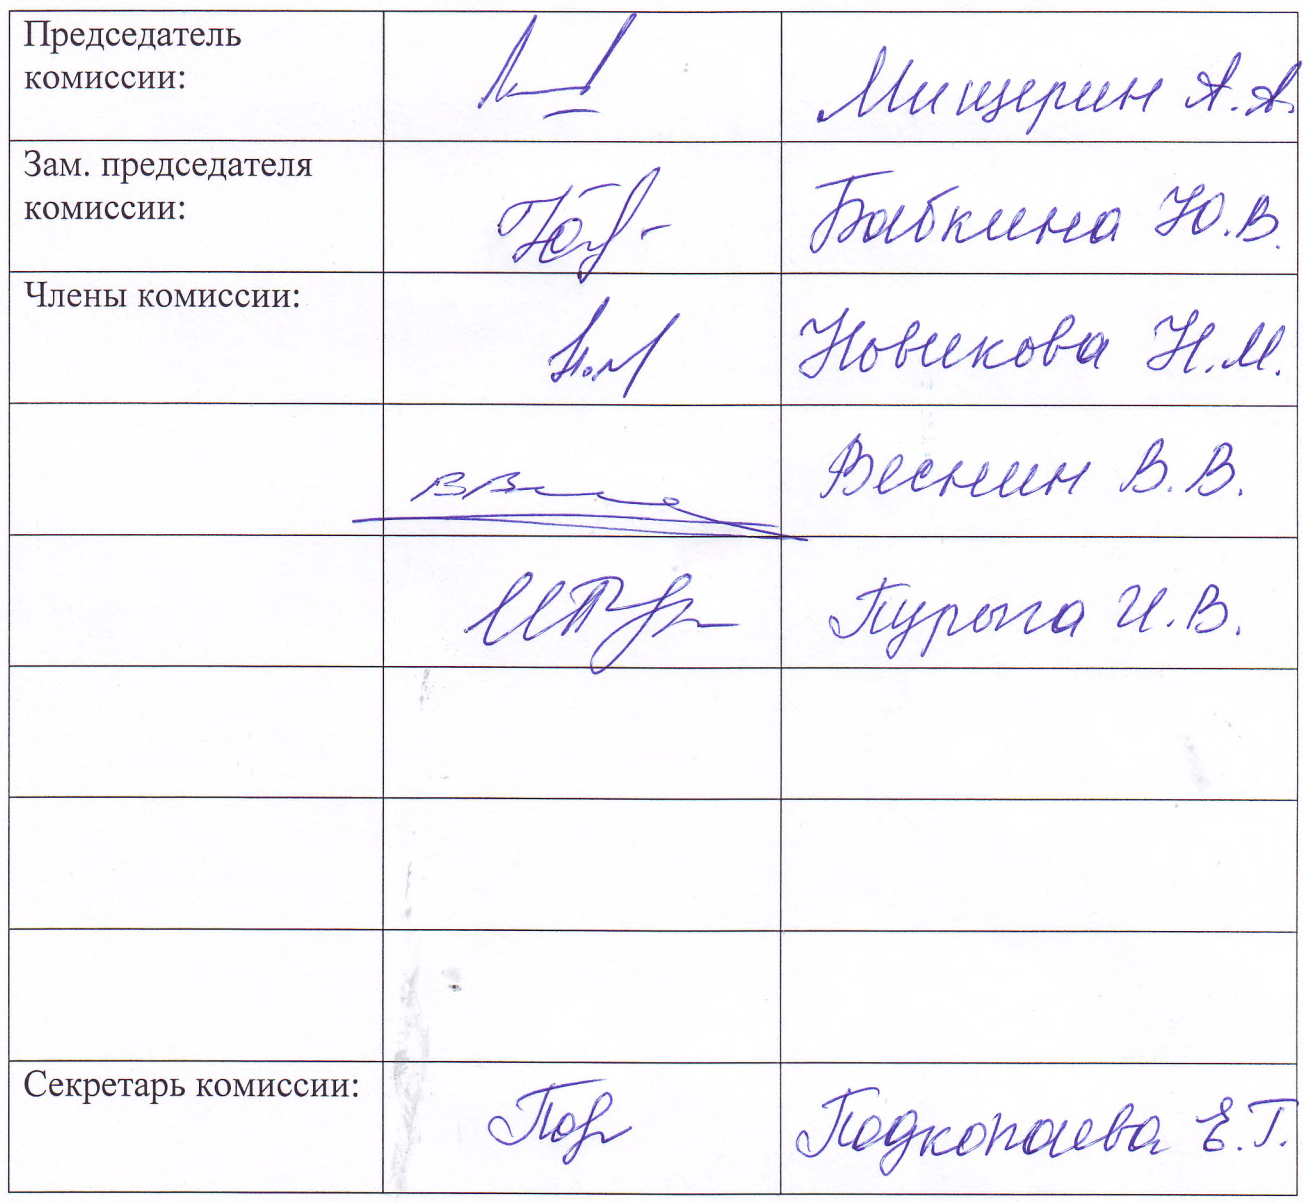 Председатель
комиссии:
Мищерин А.А.
Зам. председателя
комиссии:
Бабкина Ю.В.
Члены комиссии:
Н.М
Новикова Н.М.
Веснин В.В.
Пурыга И.В.
Секретарь комиссии:
Подкопаева Е.Г.